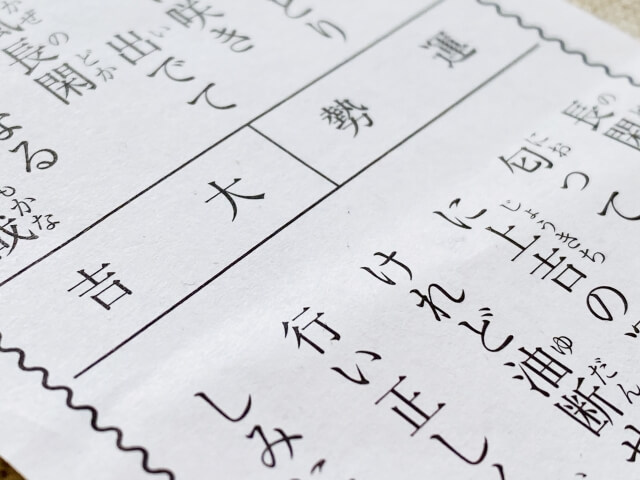 長閑
匂って
に上吉の
けれど油断せ
行い正し
しみ
運勢
大吉
とり
咲き
出でて
長閑
なる